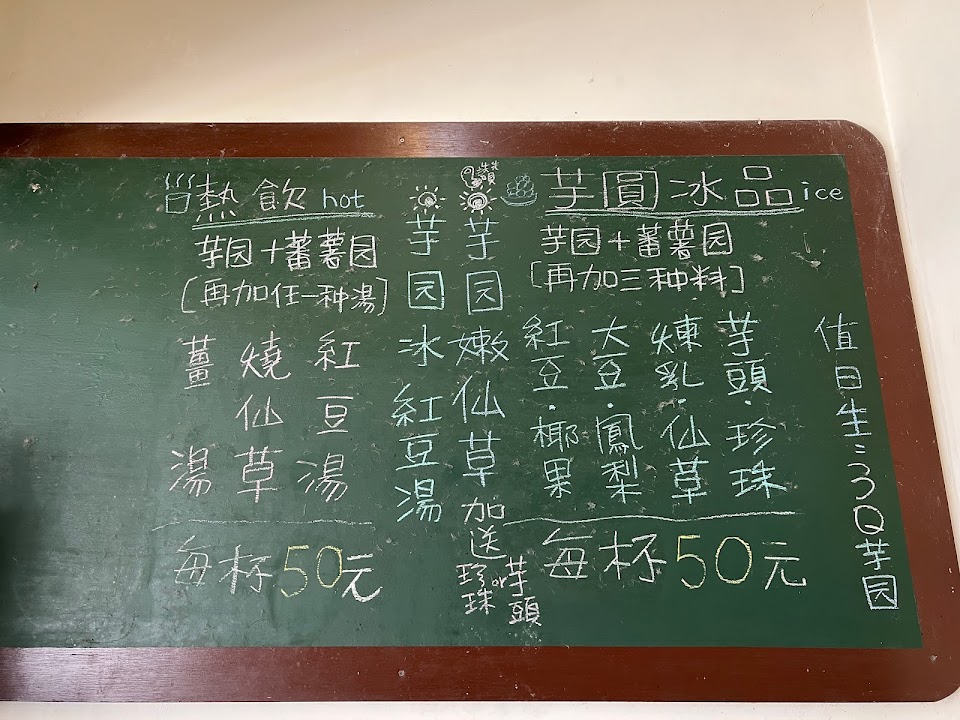 值日生:3Q芋园
芋圓冰品ice
芋园+蕃薯园
[再加三种料]
芋頭·珍珠
煉乳·仙草
大豆·鳳梨
紅豆·椰果
每杯50元
芋园嫩仙草
加送
珍珠or芋頭
芋园冰紅豆湯
熱飲hot
芋园+蕃薯园
[再加任一种湯]
紅豆湯
燒仙草
薑湯
每杯50元